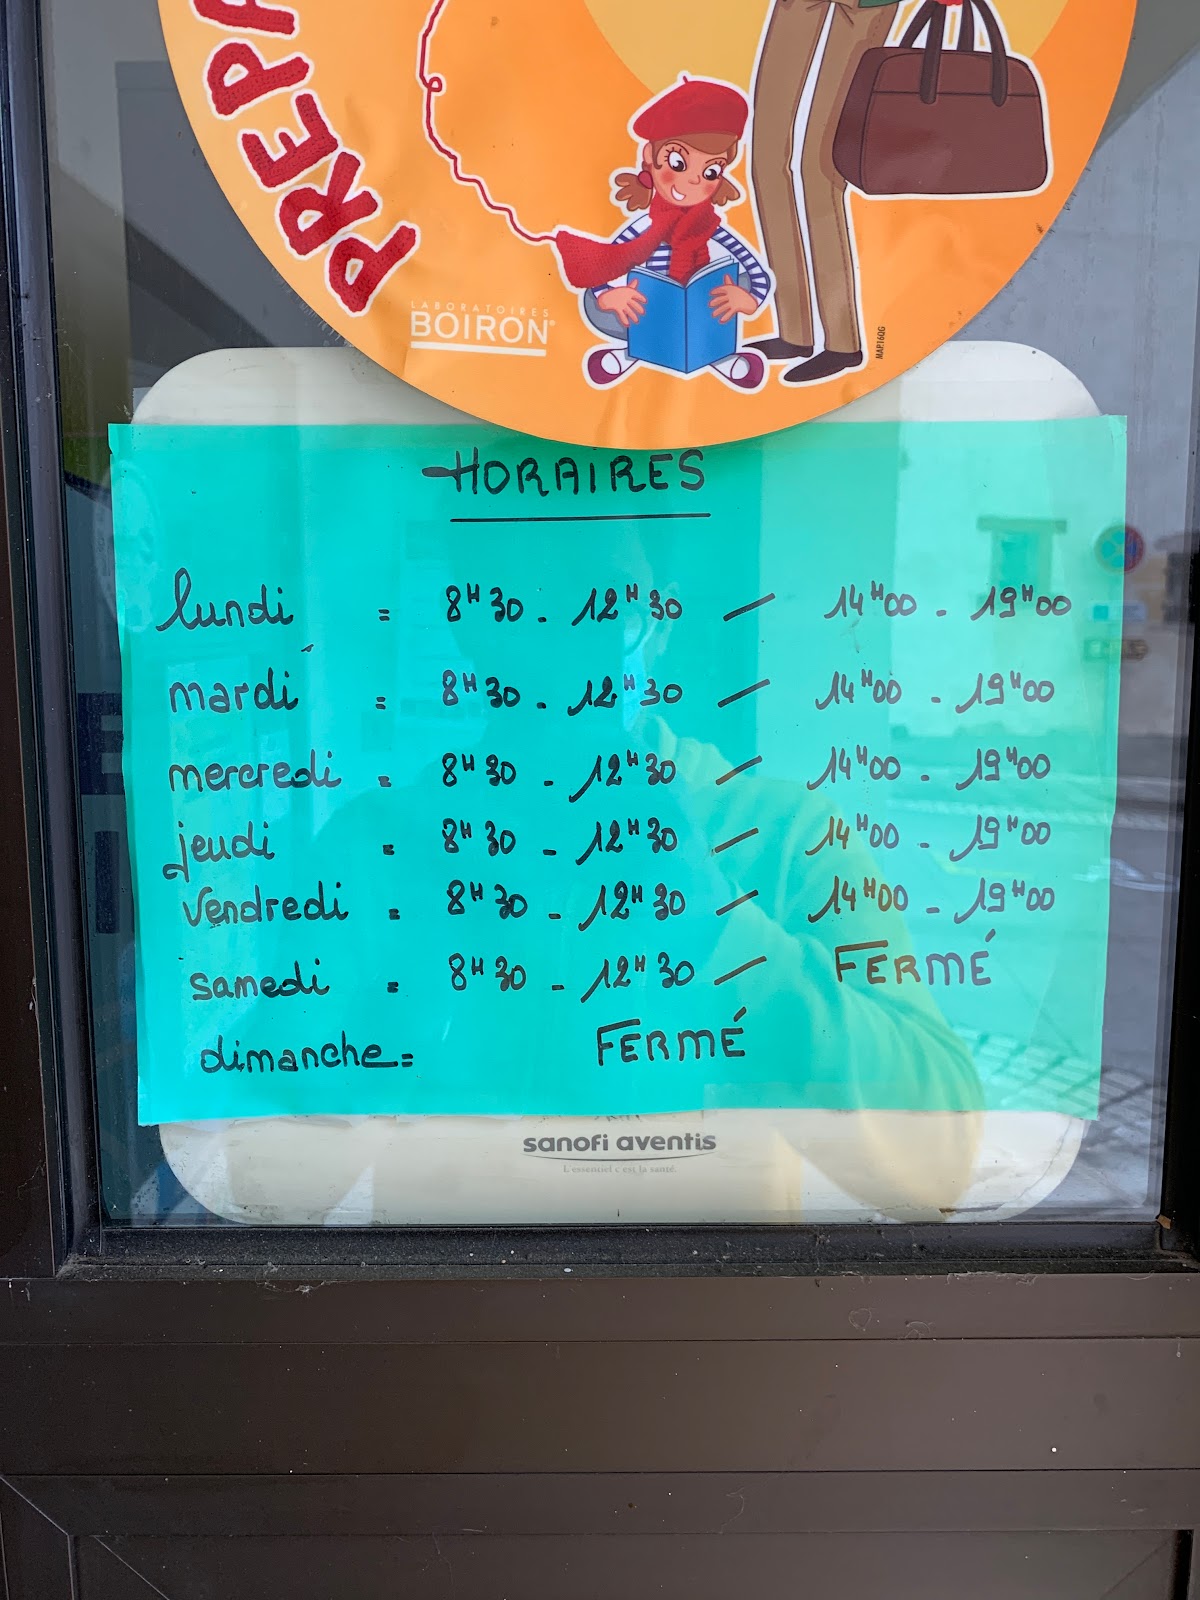 PREPA
LABORATOIRES
BOIRON®
MAP.160G
HORAIRES
lundi = 8H30 - 12H30 / 14H00 - 19H00
mardi = 8H30 - 12H30 / 14H00 - 19H00
mercredi = 8H30 - 12H30 / 14H00 - 19H00
jeudi = 8H30 - 12H30 / 14H00 - 19H00
vendredi = 8H30 - 12H30 / 14H00 - 19H00
samedi = 8H30 - 12H30 / FERMÉ
dimanche = FERMÉ
sanofi aventis
L'essentiel c'est la santé.